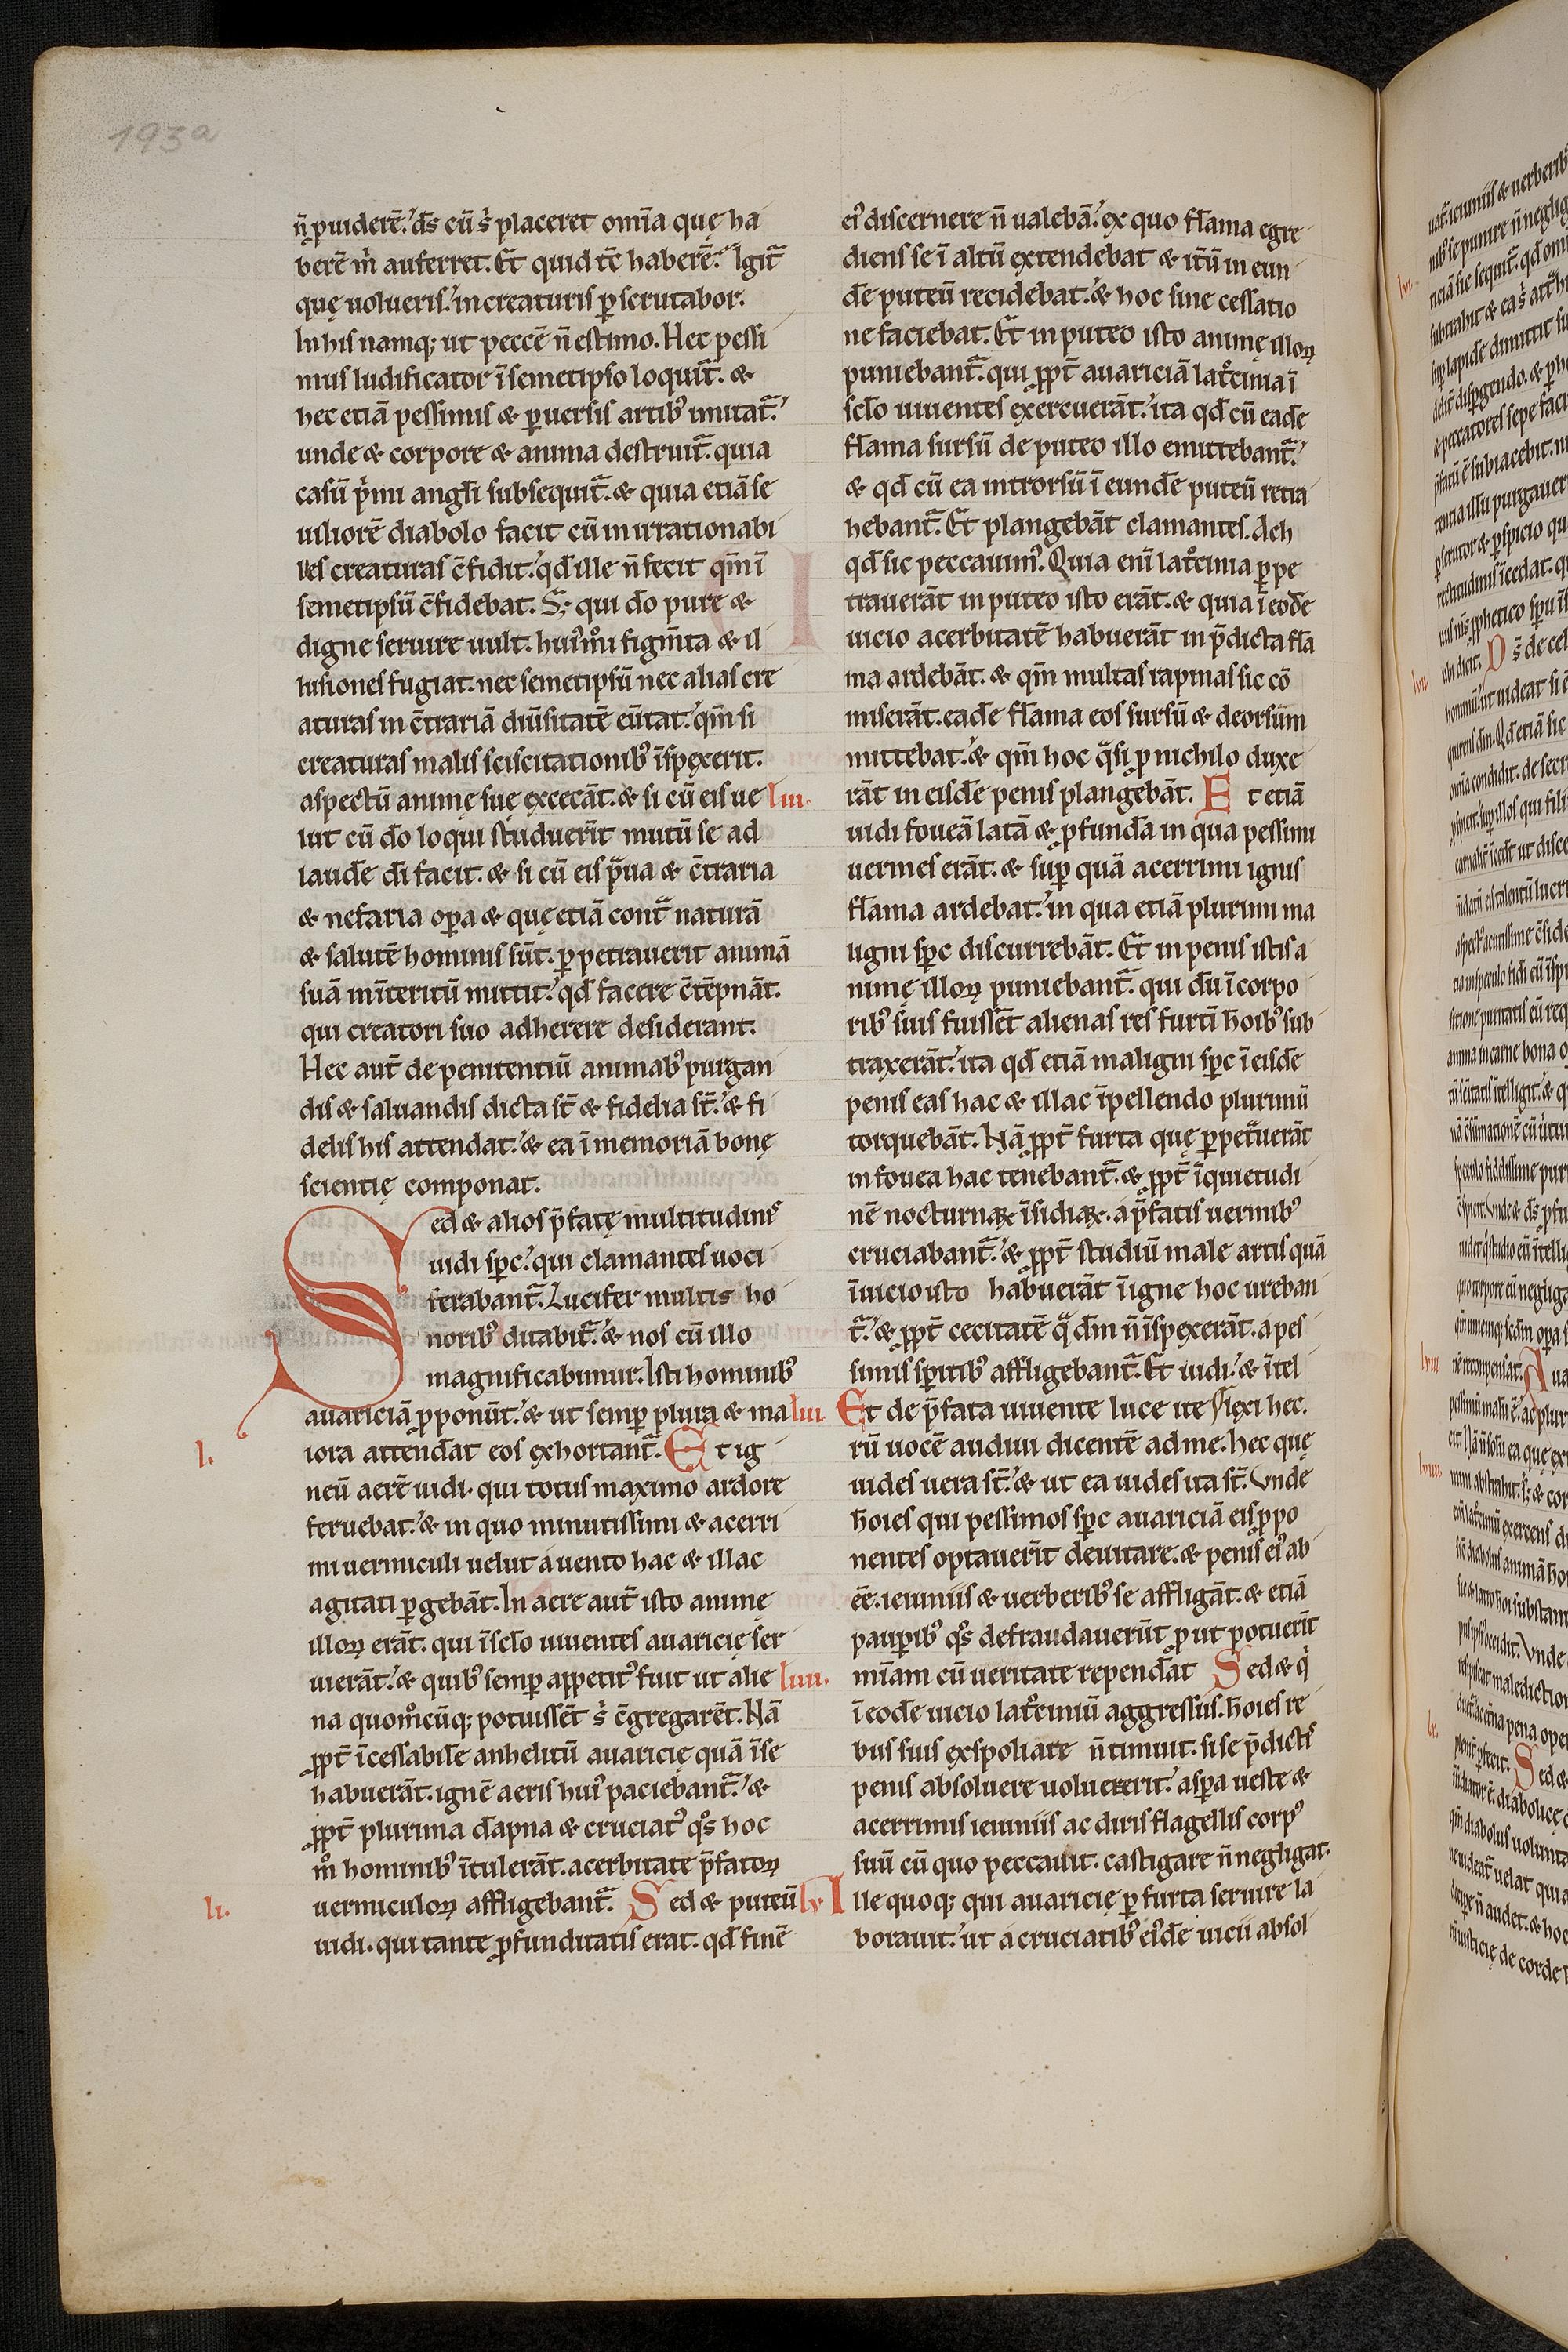 193a
ñ p̱uiderē. d̄s cū s̓ placeret om̄ia quę ha
berē m̓ auferret. Et̃ quid tē haberē. Igit̃
quę uolueris. in creaturis p̱scrutabor.
In his namq; ut peccē n̄ estimo. Hec pessi
mus ludificator ī semetipso loquit̃. &
hec etiā pessimis & p̱uersis artib᾽ imitat̃.
unde & corpore & anima destruit̃. quia
casū p̓mi angl̄i subsequit̃. & quia etiā se
uiliorē diabolo facit cū in irrationabi
les creaturas c̄fidit. qđ ille n̄ fecit qm̄ ī
semetipsū c̄fidebat. S; qui đo pure &
digne seruire uult. hui᾽ m̊i figm̄ta & il
lusiones fugiat. nec semetipsū nec alias cre
aturas in c̄trariā diūsitatē eūtat. qm̄ si
creaturas malis sciscitationib᾽ īspexerit.
aspectū animę suę excecāt. & si cū eis ue
lut cū đo loqui studuer̄it mutū se ad
laudē đi facit. & si cū eis p̃ua & c̄traria
& nefaria op̱a & quę etiā cont̃ naturā
& salutē hominis sūt. p̱petrauerit animā
suā in īteritū mittit. qđ facere c̄tēpnāt.
qui creatori suo adherere desiderant.
Hec aut̄ de penitentiū animab᾽ purgan
dis & saluandis dicta st̄ & fidelia st̄. & fi
delis his attendat. & ea ī memoriā bonę
scientię componat.
Sed & alios p̄fatę multitudinē
uidi sp̄c. qui clamantes uoci
ferabant̃. Lucifer multis ho
norib᾽ ditabit̃. & nos cū illo
magnificabimur. Isti hominib᾽
auariciā p̱ponūt. & ut semp̱ plura & ma
l. iora attendāt eos exhortant̃. Et ig
neū aerē uidi. qui totus maximo ardore
feruebat. & in quo minutissimi & acerri
mi uermiculi uelut a uento hac & illac
agitati p̱gebāt. In aere aut̄ isto animę
illoꝝ erāt. qui ī scl̄o uiuentes auaricię ser
uierāt. & quib᾽ semp̱ appetit᾽ fuit ut alie
na quom̊cūq; potuissēt s̓ c̄gregarēt. Nā
p̱pt̄ īcessabilē anhelitū auaricię quā ī se
habuerāt. ignē aeris hui᾽ paciebant̃. &
p̱pt̄ plurima dāpna & cruciat᾽ q̊s hoc
m̊ hominib᾽ ītulerāt. acerbitate p̄fatoꝝ
li. uermiculoꝝ affligebant̃. Sed & puteū
uidi. qui tante p̱funditatis erat. qđ finē
ei᾽ discernere n̄ ualebā. ex quo flāma egre
diens se ī altū extendebat & it̄ū in eun
dē puteū recidebat. & hoc sine cessatio
ne faciebat. Et̃ in puteo isto animę illoꝝ
puniebant̃. qui p̱pt̄ auariciā lat̊cinia ī
scl̄o uiuentes exercuerāt. ita qđ cū eadē
flāma sursū de puteo illo emittebant̃.
& qđ cū ea introrsū ī eundē puteū retra
hebant̃. Et̃ plangebāt clamantes. Ach
qđ sic peccauim᾽. Quia eni lat̊cinia p̱pe
trauerāt in puteo isto erāt. & quia ī eodē
uicio acerbitatē habuerāt in p̄dicta flā
ma ardebāt. & qm̄ multas rapinas sic cō
miserāt. eadē flāma eos sursū & deorsum
mittebat. & qm̄ hoc q̃si p̱ nichilo duxe
lii. rāt in eisdē penis plangebāt. Et etiā
uidi foueā latā & p̱fundā in qua pessimi
uermes erāt. & sup̱ quā acerrimi ignis
flāma ardebat. in qua etiā plurimi ma
ligni sp̄c discurrebāt. Et̃ in penis istis a
nimę illoꝝ puniebant̃. qui dū ī corpo
rib᾽ suis fuissēt alienas res furtī hoīb᾽ sub
traxerāt. ita qđ etiā maligni sp̄c ī eisdē
penis eas hac & illac īpellendo plurimū
torquebāt. Nā p̱pt̄ furta quę p̱pet̃uerāt
in fouea hac tenebant̃. & p̱pt̄ īquietudi
nē nocturnaꝝ īsidiaꝝ. a p̄fatis uermib᾽
cruciabant̃. & p̱pt̄ studiū male artis quā
ī uicio isto habuerāt ī igne hoc ureban
t̃. & p̱pt̄ cecitatē q̃ dm̄ n̄ īspexerāt. a pes
simis sp̄itib᾽ affligebant̃. Et̃ uidi. & ītel
liii. Et de p̄fata uiuente luce ite lexi hec.
rū uocē audiui dicentē ad me. hec quę
uides uera st̄. & ut ea uides ita st̄. Vnde
hoīes qui pessimos sp̄c auariciā eis p̱po
nentes optauer̄it deuitare. & penis ei᾽ ab
ēe. ieiuniis & uerberib᾽ se affligāt. & etiā
paup̱ib᾽ q̊s defraudauerūt p̱ ut potuer̄it
liiii. mīam cū ueritate rependāt Sed & q̓
ī eodē uicio lat̊ciniū aggressus. hoīes re
bus suis exspoliare n̄ timuit. si se p̄dictis
penis absoluere uoluererit. asp̱a ueste &
acerrimis ieiuniis ac diris flagellis corp᾽
suū cū quo peccauit. castigare n̄ negligat.
lv. Ille quoq; qui auaricię p̱ furta seruire la
borauit. ut a cruciatib᾽ ei᾽dē uicii absol